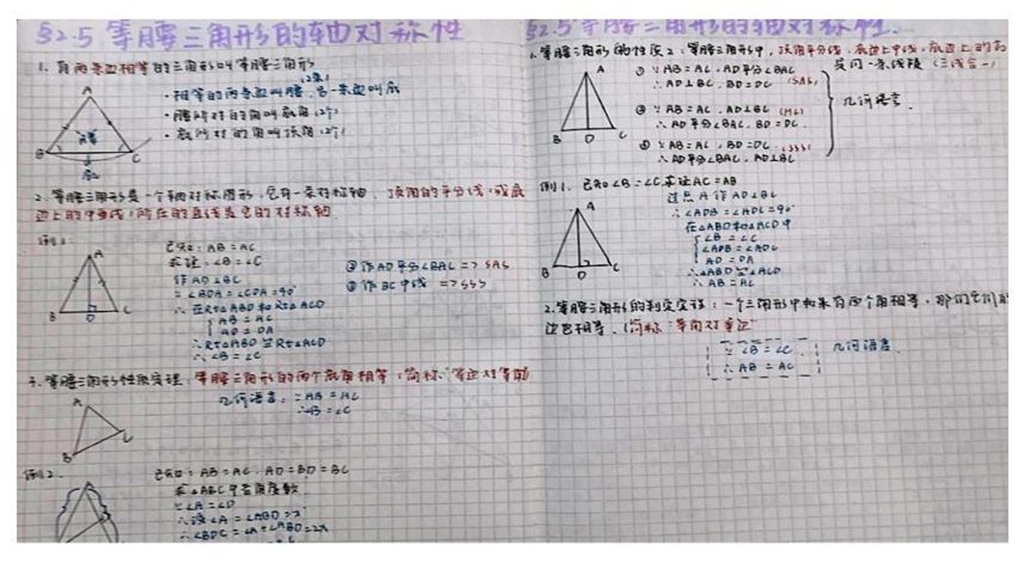 §2.5 等腰三角形的轴对称性
1. 有两条边相等的三角形叫等腰三角形
(2条)
· 相等的两条边叫腰,另一条边叫底
· 腰所对的角叫底角(2个)
· 底所对的角叫顶角(2个)
A
B
C
2. 等腰三角形是一个轴对称图形,它有一条对称轴.顶角的平分线(或底
边上的中垂线)所在的直线是它的对称轴
例1:
A
B
D
C
已知:AB=AC
求证:∠B=∠C
作AD⊥BC
∴∠BDA=∠CDA=90°
∴在Rt△ABD和Rt△ACD
AB=AC
AD=DA
∴Rt△ABD≌Rt△ACD
∴∠B=∠C
②作AD平分∠BAC=>SAS
③作BC中线 =>SSS
3. 等腰三角形性质定理:等腰三角形的两个底角相等(简称:"等边对等角")
几何语言:∵AB=AC
∴∠B=∠C
A
B
C
例2.
已知:AB=AC.AD=BD=BC
求△ABC中各角度数
∴设∠A=∠ABD=x°
∴∠BDC=∠A+∠ABD=2x
§2.5 等腰三角形的轴对称性.
1. 等腰三角形的性质2:等腰三角形中,顶角平分线,底边上中线,底边上的高
是同一条线段(三线合一)
A
B
D
C
① ∵AB=AC,AD平分∠BAC
∴AD⊥BC,BD=DC (SAS)
② ∵AB=AC,AD⊥BC (HL)
∴AD平分∠BAC,BD=DC
③ ∵AB=AC,BD=DC (SSS)
∴AD平分∠BAC,AD⊥BC
几何语言.
例1. 已知∠B=∠C,求证AC=AB
过点A作AD⊥BC
∴∠ADB=∠ADC=90°
在△ABD和△ACD中
∠B=∠C
∠ADB=∠ADC
AD=DA
∴△ABD≌△ACD
∴AB=AC
A
B
D
C
2. 等腰三角形的判定定理:一个三角形中如果有两个角相等,那们它们的
边也相等.(简称"等角对等边"
∵∠B=∠C
∴AB=AC
几何语言.